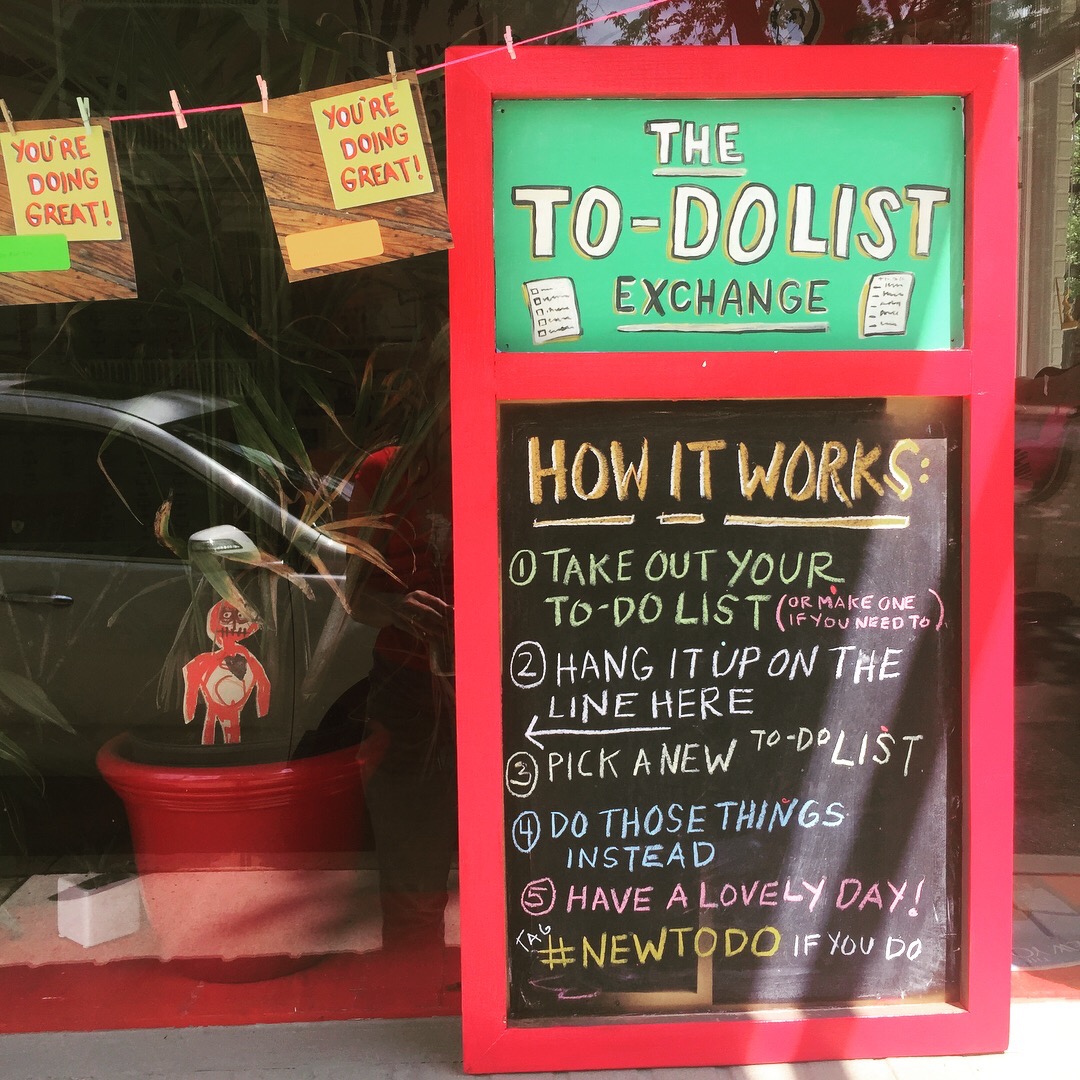 YOU'RE
DOING
GREAT!
YOU'RE
DOING
GREAT!
THE
TO-DO LIST
EXCHANGE
HOW IT WORKS:
① TAKE OUT YOUR
TO-DO LIST (OR MAKE ONE
IF YOU NEED TO)
② HANG IT UP ON THE
LINE HERE
③ PICK A NEW TO-DO LIST
④ DO THOSE THINGS
INSTEAD
⑤ HAVE A LOVELY DAY!
TAG #NEWTODO IF YOU DO